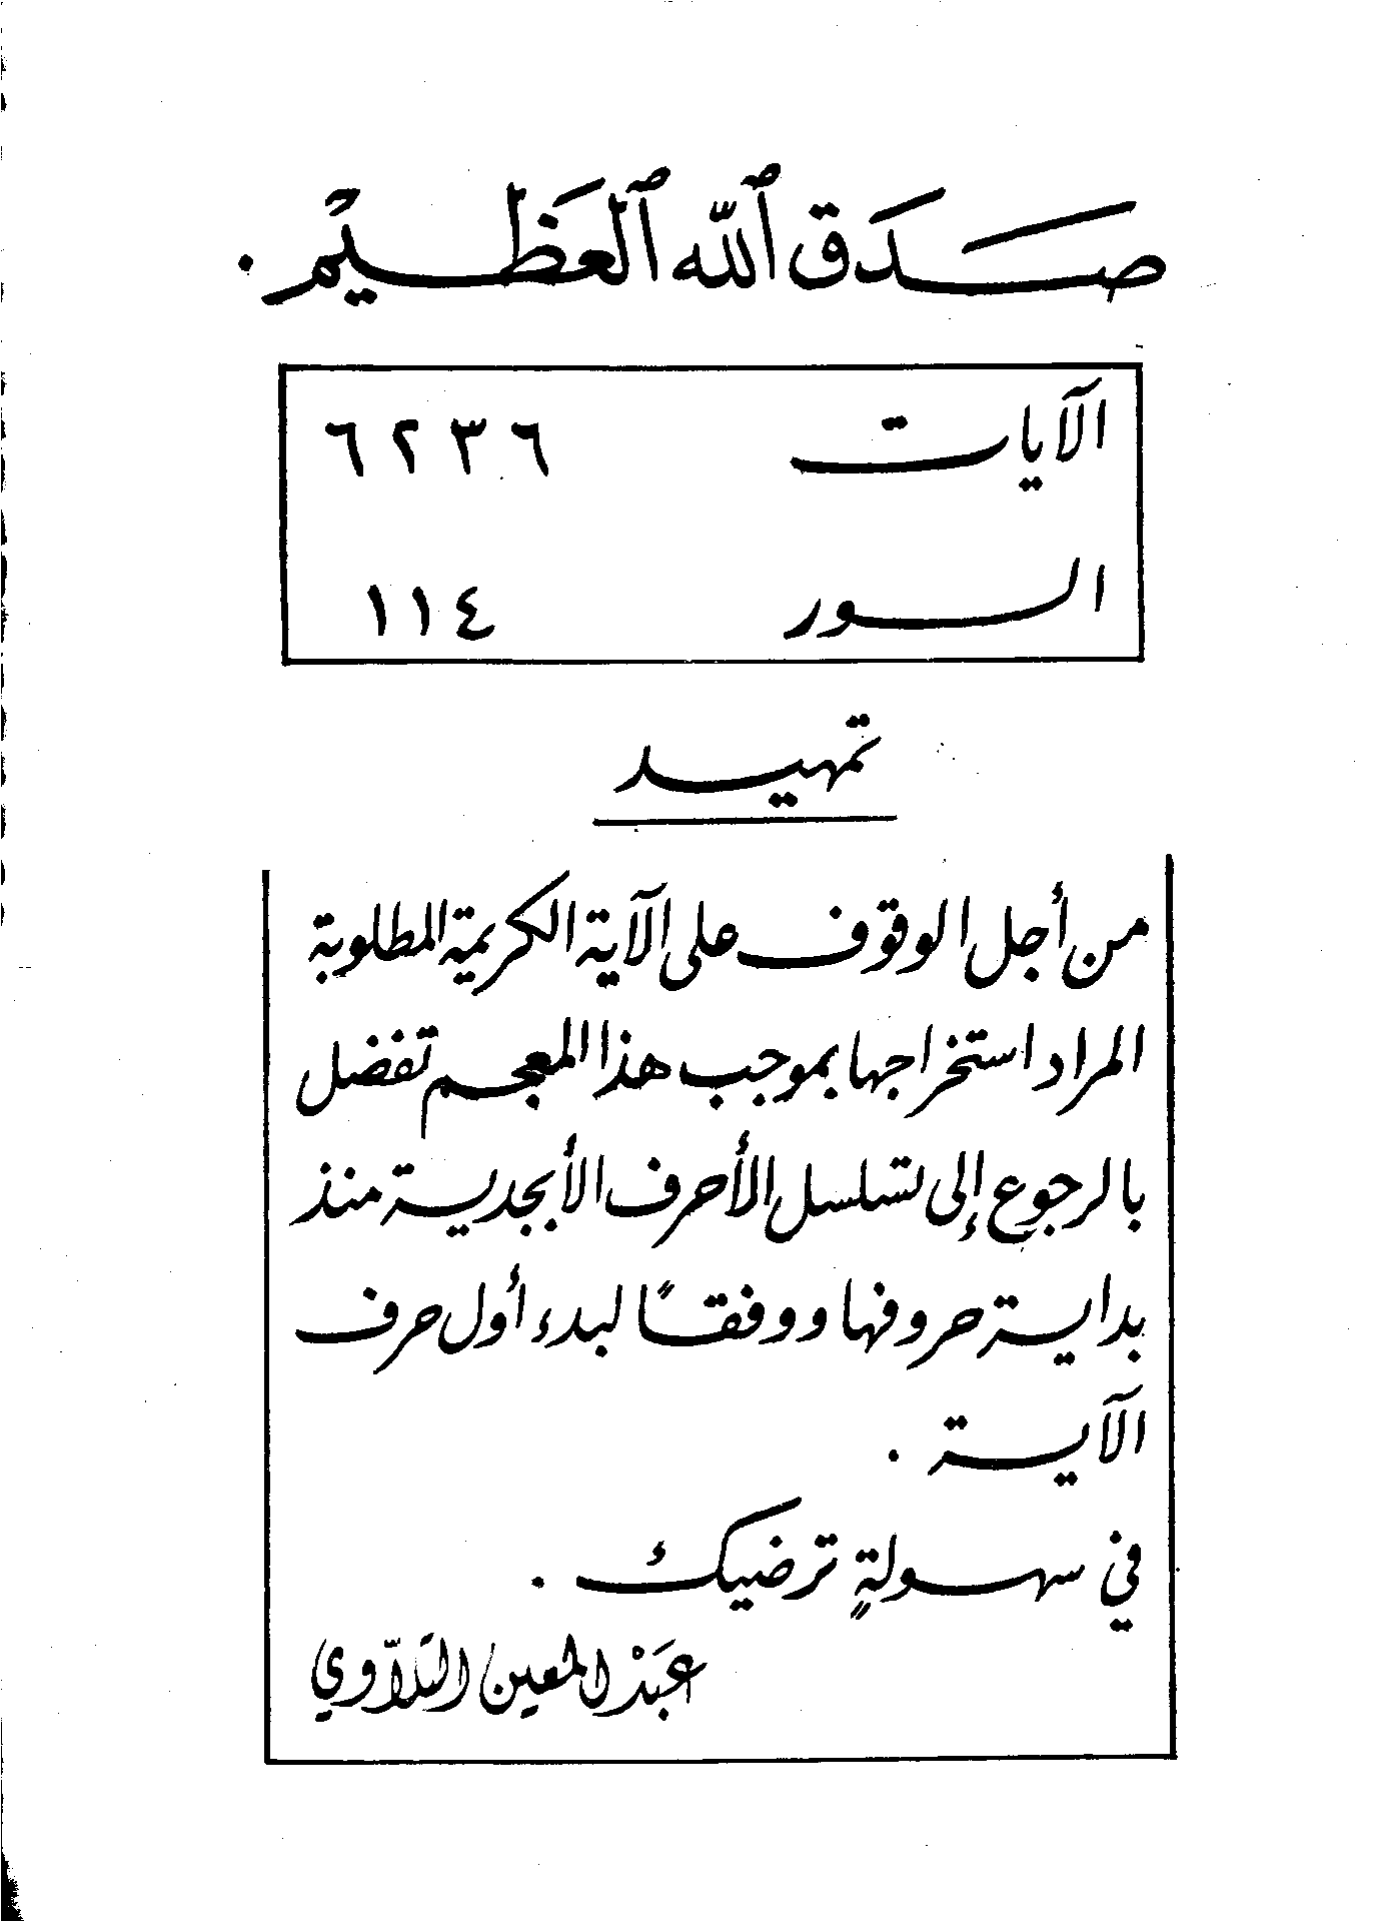 صَدَقَ ٱللّٰه ٱلعَظِيْم .
الآيات ٦٢٣٦
السور ١١٤
تمهيد
من أجل الوقوف على الآية الكريمة المطلوبة
المراد استخراجها بموجب هذا المعجم تفضل
بالرجوع إلى تسلسل الأحرف الأبجدية منذ
بداية حروفها ووفقاً لبدء أول حرف
الآية .
في سهولةٍ ترضيك .
عَبْد المعين التلاّوي